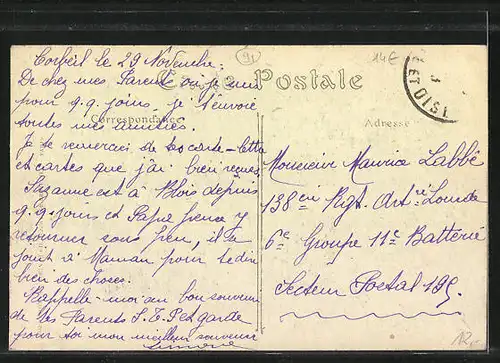 Corbeil le 29 Novembre.
De chez mes Parents où je suis
pour q.q. jours, je t'envoie
toutes mes amitiés.
Je te remercie de tes carte-lettre
et cartes que j'ai bien reçues
Suzanne est à Blois depuis
q.q. jours et Papa pense y
retourner sous peu, il se
joint à Maman pour te dire
bien des choses.
Rappelle-moi au bon souvenir
de tes Parents S.T.P. et garde
pour toi mon meilleur souvenir
Simone
91
14€
Carte Postale
ET OISE
Correspondance
Adresse
Monsieur Maurice Labbé
138e Rigt. Art ie Lourde
6e Groupe 11e Batterie
Secteur Postal 195.
12,-